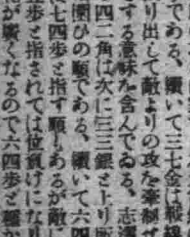 である。續いて三七金は戰線
り出して敵よりの攻を牽制せ
する意味を含んでゐる。志澤
四二角は次に三三銀と上り
圍ひの順である。續いて六四
に七四歩と指す順もあるが敵に
五歩と指されては位負けになり
が嚴くなるので六四歩と